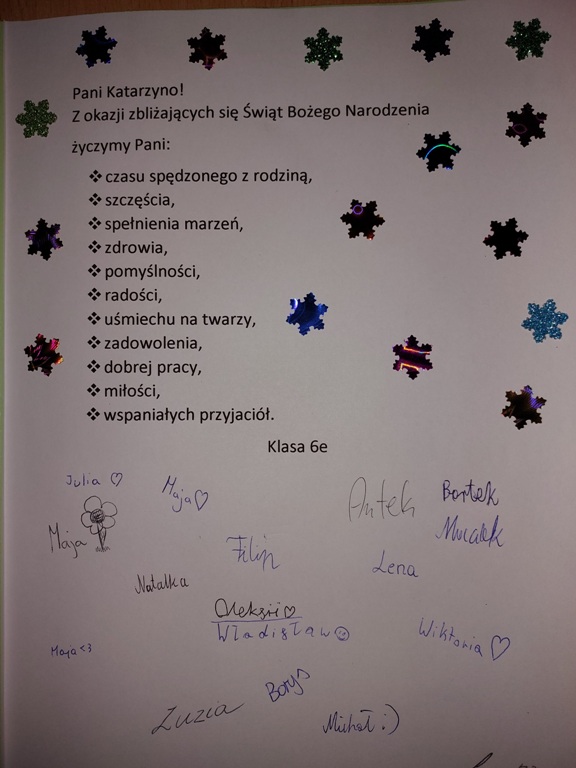 Pani Katarzyno!
Z okazji zbliżających się Świąt Bożego Narodzenia
życzymy Pani:
❖ czasu spędzonego z rodziną,
❖ szczęścia,
❖ spełnienia marzeń,
❖ zdrowia,
❖ pomyślności,
❖ radości,
❖ uśmiechu na twarzy,
❖ zadowolenia,
❖ dobrej pracy,
❖ miłości,
❖ wspaniałych przyjaciół.
Klasa 6e
Julia ♡
Maja ♡
Antek
Bartek
Maja
Filip
Lena
Natalka
Oleksii ♡
Wladisław ☺
Wiktoria ♡
Maja <3
Borys
Zuzia
Michał :)